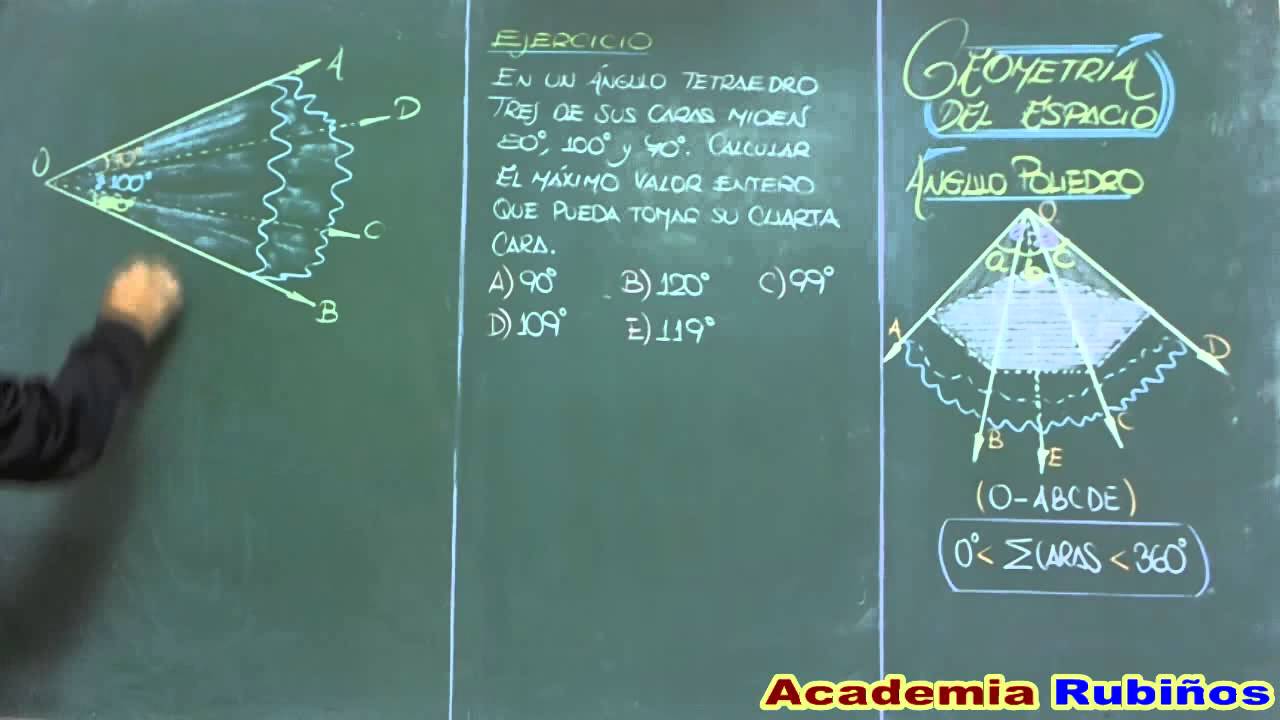 A
D
O
100°
C
B
EJERCICIO
EN UN ÁNGULO TETRAEDRO
TRES DE SUS CARAS MIDEN
80°, 100° y 70°. CALCULAR
EL MÁXIMO VALOR ENTERO
QUE PUEDA TOMAR SU CUARTA
CARA.
A) 90° B) 120° C) 99°
D) 109° E) 119°
GEOMETRÍA
DEL ESPACIO
ÁNGULO POLIEDRO
O
a b c
A
D
B
C
E
(O-ABCDE)
0° < ΣCARAS < 360°
Academia Rubiños